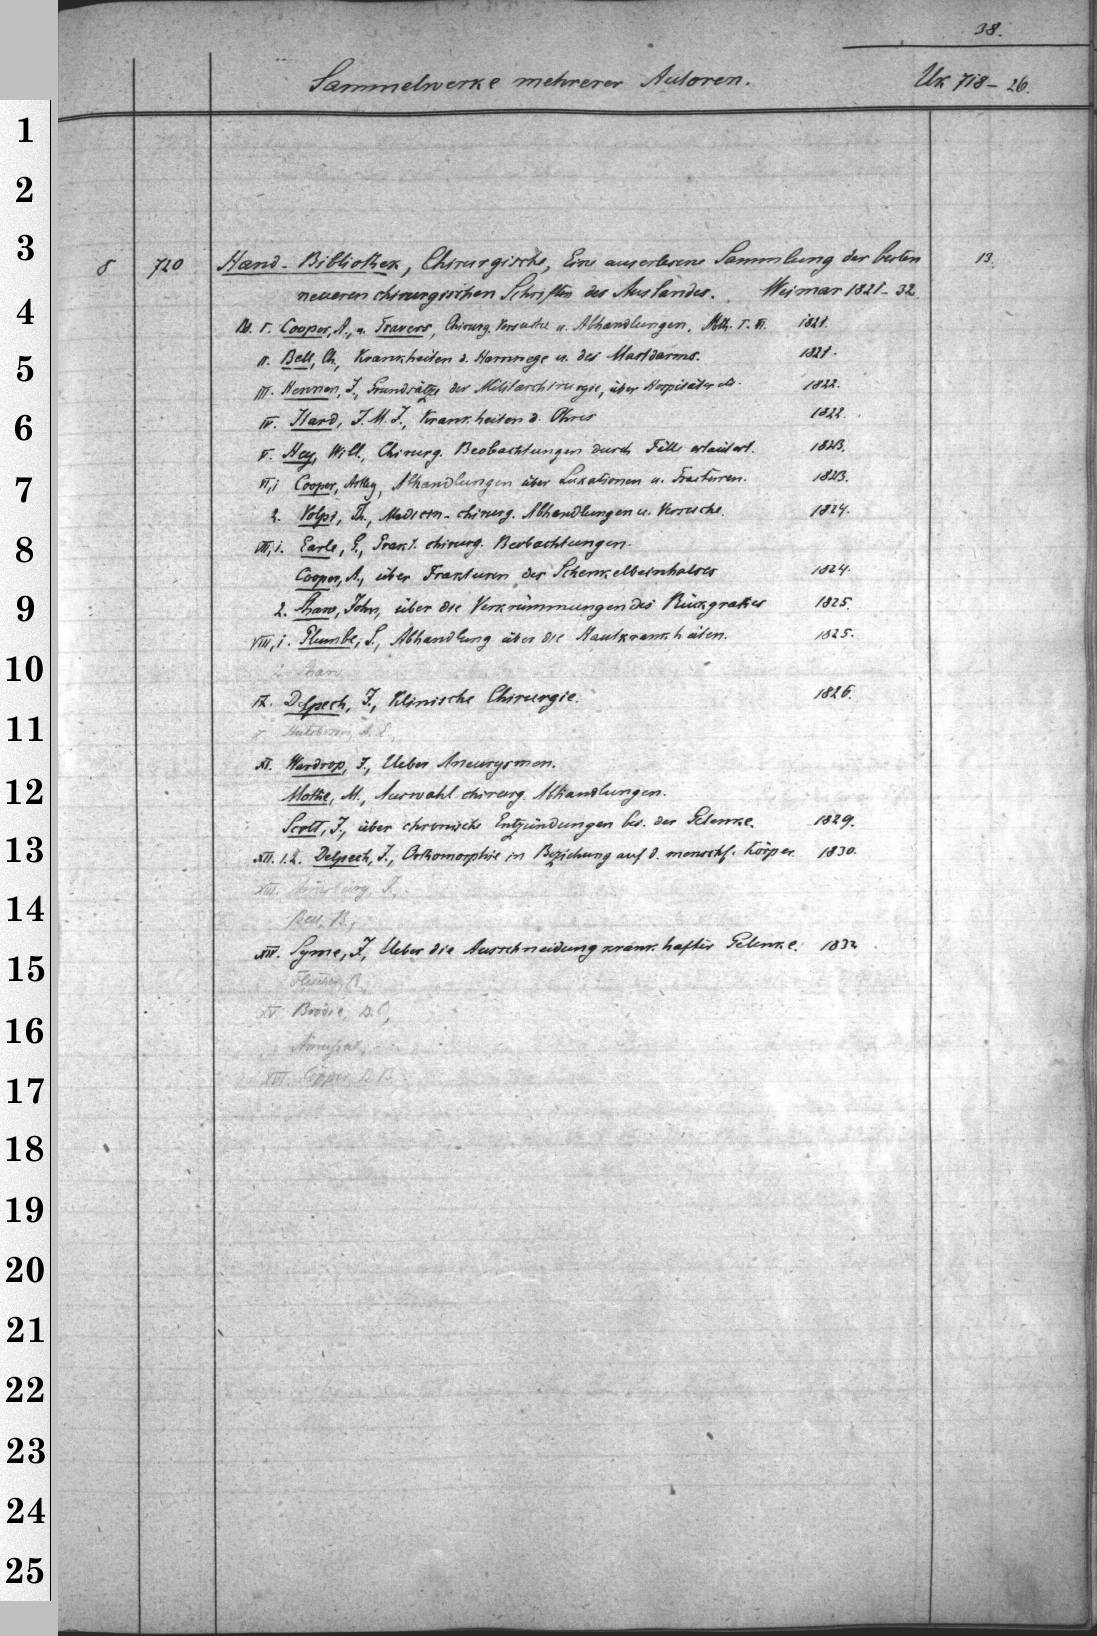 38.
Sammelwerke mehrerer Autoren. Uk 718-26.
8 720 Hand-Bibliothek, Chirurgische, Eine auserlesene Sammlung der besten 13.
neueren chirurgischen Schriften des Auslandes. Weimar 1821-32
Bd. I. Cooper, A., u. Travers, Chirurg. Versuche u. Abhandlungen. Abth. I. II. 1821.
II. Bell, Ch., Krankheiten d. Harnwege u. des Mastdarms. 1821.
III. Hennen, J., Grundsätze der Militärchirurgie, über Hospitäler etc. 1822.
IV. Itard, J.M.J., Krankheiten d. Ohres 1822.
V. Hey, Will., Chirurg. Beobachtungen durch Fälle erläutert. 1823.
VI,1 Cooper, Astley, Abhandlungen über Luxationen u. Fracturen. 1823.
2. Volpi, Th., Medicin-chirurg. Abhandlungen u. Versuche. 1824.
VII,1. Earle, G., Prakt. chirurg. Beobachtungen.
Cooper, A., über Frakturen des Schenkelbeinhalses 1824.
2. Shaw, John, über die Verkrümmungen des Rückgrates 1825.
VIII,1. Plumbe, S., Abhandlung über die Hautkrankheiten. 1825.
2. Shaw
IX. Delpech, J., Klinische Chirurgie. 1826.
X. Hutchison, A. C.,
XI. Wardrop, J., Ueber Aneurysmen.
Mothe, M., Auswahl chirurg. Abhandlungen.
Scott, J., über chronische Entzündungen bes. der Gelenke. 1829.
XII. 1.2. Delpech, J., Orthomorphie in Beziehung auf d. menschl. Körper. 1830.
XIII. J.,
Bell, B.,
XIV. Syme, J., Ueber die Ausschneidung krankhafter Gelenke. 1832
XV Brodie, B.C.,
XVI. Cooper, B.B.
1
2
3
4
5
6
7
8
9
10
11
12
13
14
15
16
17
18
19
20
21
22
23
24
25